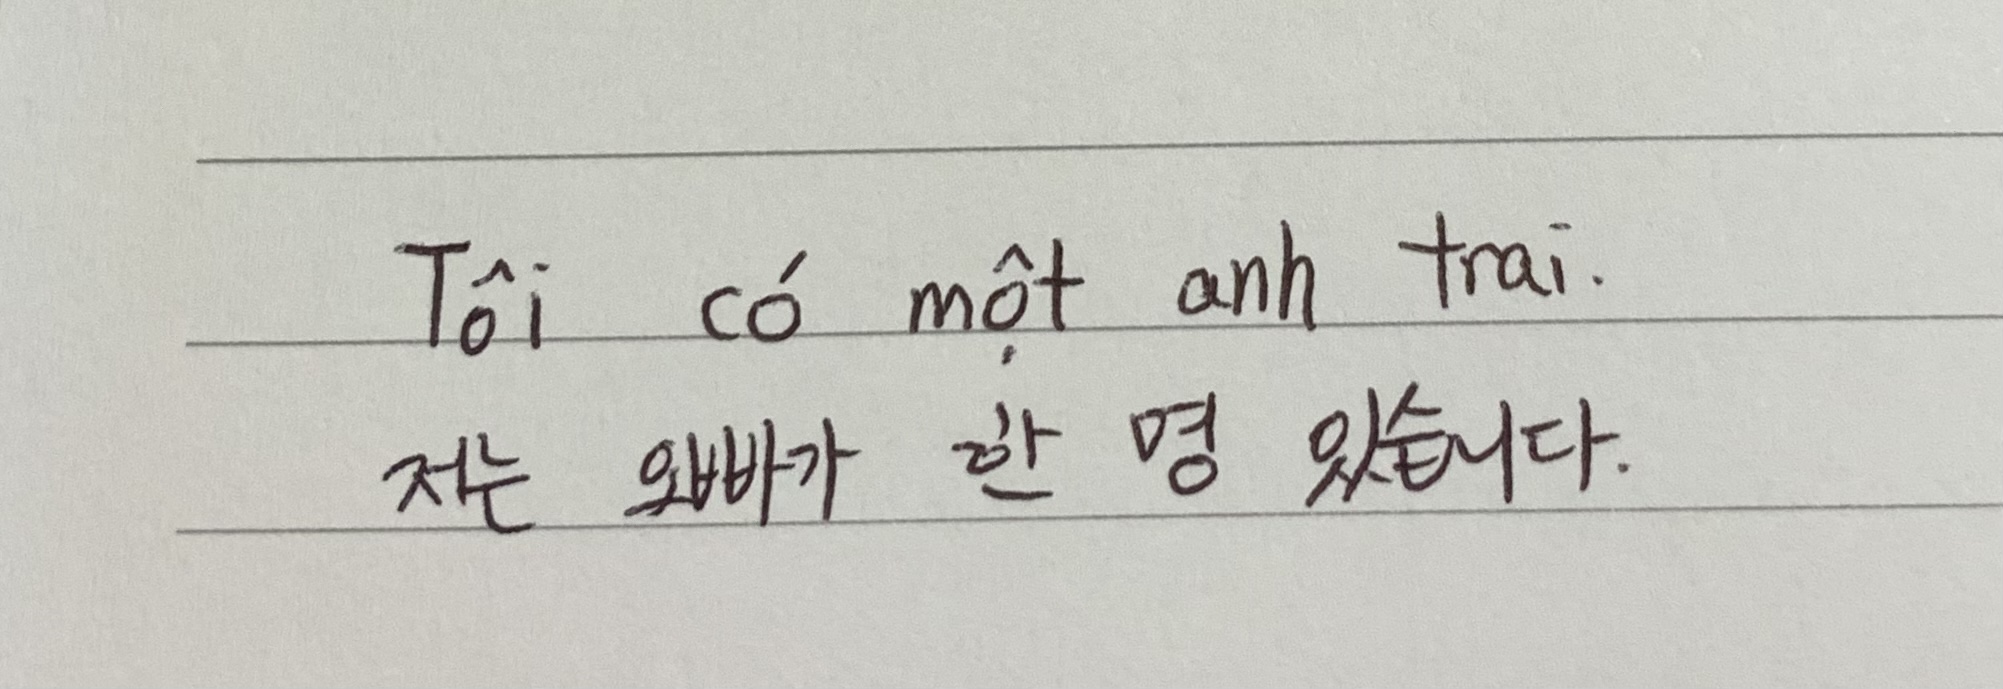 Tôi có một anh trai.
저는 오빠가 한 명 있습니다.